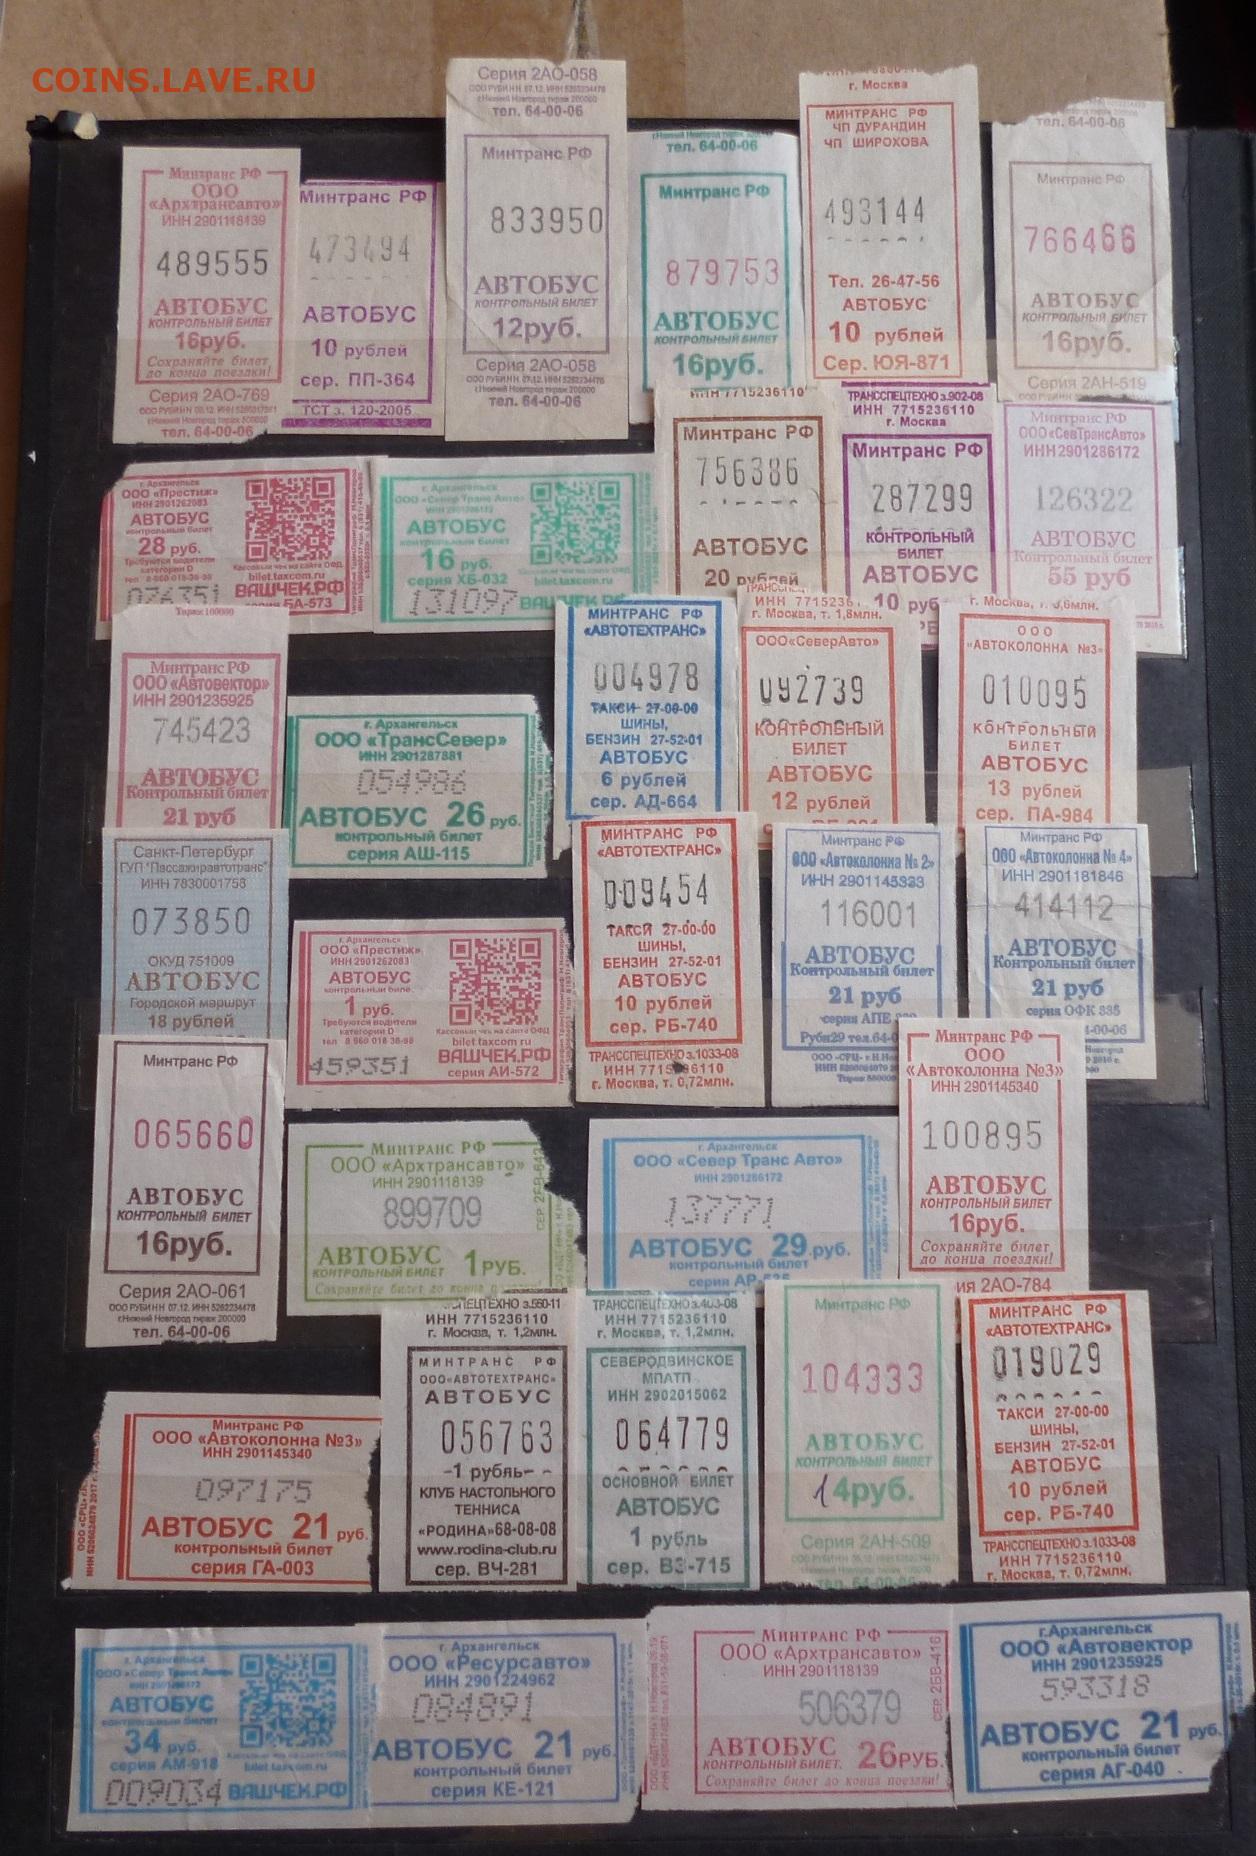 COINS.LAVE.RU
Минтранс РФ
ООО
«Архтрансавто»
ИНН 2901118139
489555
АВТОБУС
КОНТРОЛЬНЫЙ БИЛЕТ
16руб.
Сохраняйте билет
до конца поездки!
Серия 2АО-769
тел. 64-00-06
Минтранс РФ
473494
АВТОБУС
10 рублей
сер. ПП-364
ТСТ з. 120-2005
Серия 2АО-058
ООО РУБИНН 07.12. ИНН 5262234478
г.Нижний Новгород тираж 200000
тел. 64-00-06
Минтранс РФ
833950
АВТОБУС
КОНТРОЛЬНЫЙ БИЛЕТ
12руб.
Серия 2АО-058
ООО РУБИНН 07.12. ИНН 5262234478
г.Нижний Новгород тираж 200000
тел. 64-00-06
тел. 64-00-06
Минтранс РФ
879753
АВТОБУС
КОНТРОЛЬНЫЙ БИЛЕТ
16руб.
г. Москва
МИНТРАНС РФ
ЧП ДУРАНДИН
ЧП ШИРОХОВА
493144
Тел. 26-47-56
АВТОБУС
10 рублей
Сер. ЮЯ-871
тел. 64-00-06
Минтранс РФ
766466
АВТОБУС
КОНТРОЛЬНЫЙ БИЛЕТ
16руб.
Серия 2АН-519
г. Архангельск
ООО «Престиж»
ИНН 2901262083
АВТОБУС
контрольный билет
28 руб.
Требуются водители
категории D
тел 8 960 018-38-98
076351
Кассовый чек на сайте ОФД
bilet.taxcom.ru
ВАШЧЕК.РФ
серия БА-573
г. Архангельск
ООО «Север Транс Авто»
ИНН 2901286172
АВТОБУС
контрольный билет
16 руб.
серия ХБ-032
131097
bilet.taxcom.ru
ВАШЧЕК.РФ
ИНН 7715236110
Минтранс РФ
756386
АВТОБУС
20 рублей
ТРАНССПЕЦТЕХНО з.902-08
ИНН 7715236110
г. Москва
Минтранс РФ
287299
КОНТРОЛЬНЫЙ
БИЛЕТ
АВТОБУС
10 руб
Минтранс РФ
ООО«СевТрансАвто»
ИНН2901286172
126322
АВТОБУС
Контрольный билет
55 руб
Тираж 100000
Минтранс РФ
ООО «Автовектор»
ИНН 2901235925
745423
АВТОБУС
Контрольный билет
21 руб
г. Архангельск
ООО «ТрансСевер»
ИНН 2901287881
054986
АВТОБУС 26 руб.
контрольный билет
серия АШ-115
МИНТРАНС РФ
«АВТОТЕХТРАНС»
004978
ТАКСИ 27-00-00
ШИНЫ,
БЕНЗИН 27-52-01
АВТОБУС
6 рублей
сер. АД-664
г. Москва, т. 1,8млн.
ООО«СеверАвто»
092739
КОНТРОЛЬНЫЙ
БИЛЕТ
АВТОБУС
12 рублей
ООО
«АВТОКОЛОННА №3»
010095
КОНТРОЛЬНЫЙ
БИЛЕТ
АВТОБУС
13 рублей
сер. ПА-984
Санкт-Петербург
ГУП "Пассажиравтотранс"
ИНН 7830001758
073850
ОКУД 751009
АВТОБУС
Городской маршрут
18 рублей
г. Архангельск
ООО «Престиж»
ИНН 2901262083
АВТОБУС
контрольный биле
1 руб.
Требуются водители
категории D
тел 8 960 018 38-98
459351
Кассовый чек на сайте ОФД
bilet.taxcom.ru
ВАШЧЕК.РФ
серия АИ-572
МИНТРАНС РФ
«АВТОТЕХТРАНС»
009454
ТАКСИ 27-00-00
ШИНЫ,
БЕНЗИН 27-52-01
АВТОБУС
10 рублей
сер. РБ-740
ТРАНССПЕЦТЕХНО з.1033-08
ИНН 7715236110
г. Москва, т. 0,72млн.
Минтранс РФ
ООО «Автоколонна № 2»
ИНН 2901145333
116001
АВТОБУС
Контрольный билет
21 руб
серия АПЕ
Минтранс РФ
ООО «Автоколонна № 4»
ИНН 2901181846
414112
АВТОБУС
Контрольный билет
21 руб
серия ОФК 335
Минтранс РФ
065660
АВТОБУС
КОНТРОЛЬНЫЙ БИЛЕТ
16руб.
Серия 2АО-061
ООО РУБИНН 07.12. ИНН 5262234478
г.Нижний Новгород тираж 200000
тел. 64-00-06
Минтранс РФ
ООО «Архтрансавто»
ИНН 2901118139
899709
АВТОБУС 1РУБ.
КОНТРОЛЬНЫЙ БИЛЕТ
Сохраняйте билет до конца
г. Архангельск
ООО «Север Транс Авто»
ИНН 2901286172
137771
АВТОБУС 29 руб.
контрольный билет
серия АР-535
Минтранс РФ
ООО
«Автоколонна №3»
ИНН 2901145340
100895
АВТОБУС
КОНТРОЛЬНЫЙ БИЛЕТ
16руб.
Сохраняйте билет
до конца поездки!
ия 2АО-784
Минтранс РФ
ООО «Автоколонна №3»
ИНН 2901145340
097175
АВТОБУС 21 руб.
контрольный билет
серия ГА-003
СПЕЦТЕХНО з.560-11
ИНН 7715236110
г. Москва, т. 1,2млн.
МИНТРАНС РФ
ООО«АВТОТЕХТРАНС»
АВТОБУС
056763
1 рубль
КЛУБ НАСТОЛЬНОГО
ТЕННИСА
«РОДИНА»68-08-08
www.rodina-club.ru
сер. ВЧ-281
ТРАНССПЕЦТЕХНО з.403-08
ИНН 7715236110
г. Москва, т. 1,2млн.
СЕВЕРОДВИНСКОЕ
МПАТП
ИНН 2902015062
064779
ОСНОВНОЙ БИЛЕТ
АВТОБУС
1 рубль
сер. ВЗ-715
Минтранс РФ
104333
АВТОБУС
КОНТРОЛЬНЫЙ БИЛЕТ
14руб.
Серия 2АН-509
тел. 64-00-06
МИНТРАНС РФ
«АВТОТЕХТРАНС»
019029
ТАКСИ 27-00-00
ШИНЫ,
БЕНЗИН 27-52-01
АВТОБУС
10 рублей
сер. РБ-740
ТРАНССПЕЦТЕХНО з.1033-08
ИНН 7715236110
г. Москва, т. 0,72млн.
г. Архангельск
ООО «Север Транс Авто»
АВТОБУС
контрольный билет
34 руб.
серия АМ-918
009034
bilet.taxcom.ru
ВАШЧЕК.РФ
г. Архангельск
ООО «Ресурсавто»
ИНН 2901224962
084891
АВТОБУС 21 руб.
контрольный билет
серия КЕ-121
Минтранс РФ
ООО «Архтрансавто»
ИНН 2901118139
506379
АВТОБУС 26РУБ.
КОНТРОЛЬНЫЙ БИЛЕТ.
Сохраняйте билет до конца поездки!
СЕР. 2БВ-416
г.Архангельск
ООО «Автовектор
ИНН 2901235925
593318
АВТОБУС 21 руб.
контрольный билет
серия АГ-040